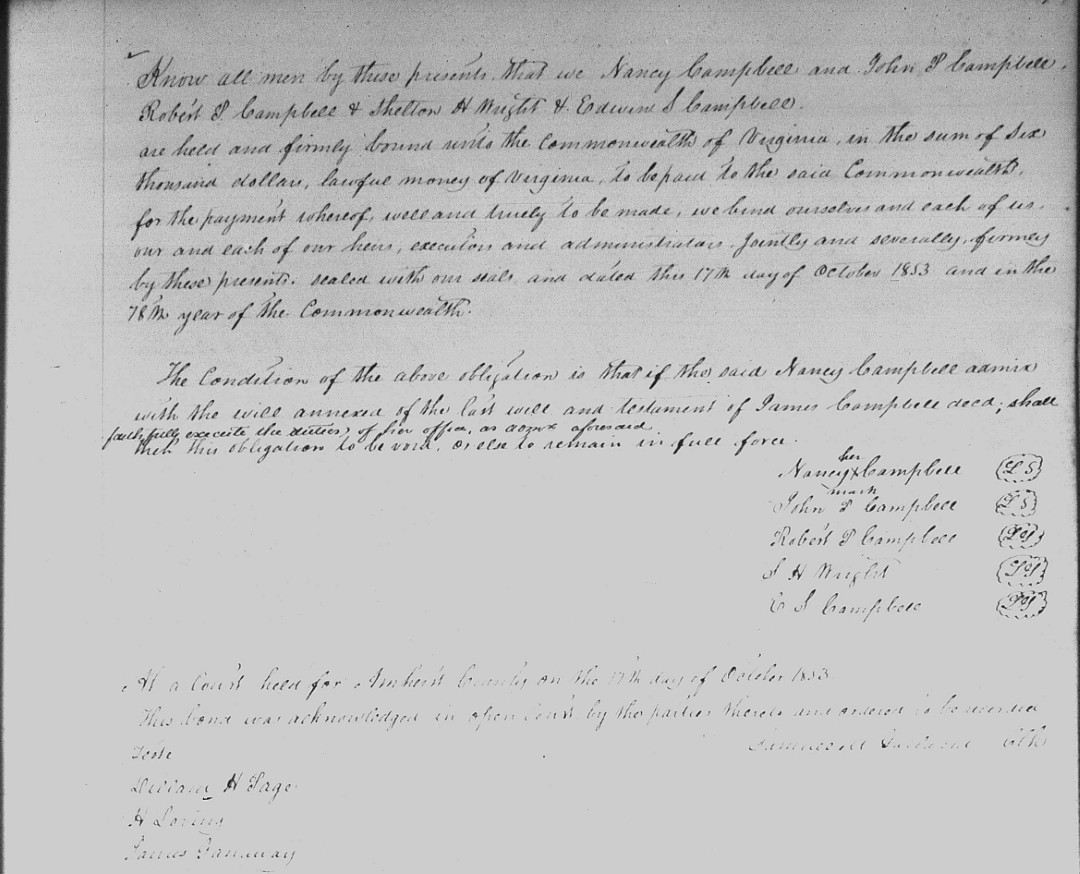 Know all men by these presents that we Nancy Campbell and John P Campbell,
Robert P. Campbell & Shelton H Wright & Edwin S Campbell.
are held and firmly bound unto the Commonwealth of Virginia, in the sum of Six
thousand dollars, lawful money of Virginia, to be paid to the said Commonwealth,
for the payment whereof, well and truely to be made, we bind ourselves and each of us,
our and each of our heirs, executors and administrators. Jointly and severally, firmly
by these presents. sealed with our seals and dated this 17th day of October 1853 and in the
78th year of the Commonwealth.
The Condition of the above obligation is that if the said Nancy Campbell admix
with the will annexed of the last will and testament of James Campbell decd; shall
faithfully execute the duties of her office, as admx aforesaid
then this obligation to be void, or else to remain in full force.
her
Nancy X Campbell LS
mark
John P Campbell LS
Robert P Campbell LS
S H Wright LS
E S Campbell LS
At a Court held for Amherst County on the 17th day of October 1853
This bond was acknowledged in open Court by the parties thereto and ordered to be recorded
Teste
Garland Clk
William H
H Loving
James